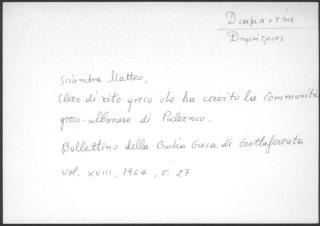 Sciambra Matteo,
Clero di rito greco che ha servito la Comunità
greco-albanese di Palermo.
Bollettino della Badia Greca di Grottaferrata
vol. XVIII, 1964, σ. 27